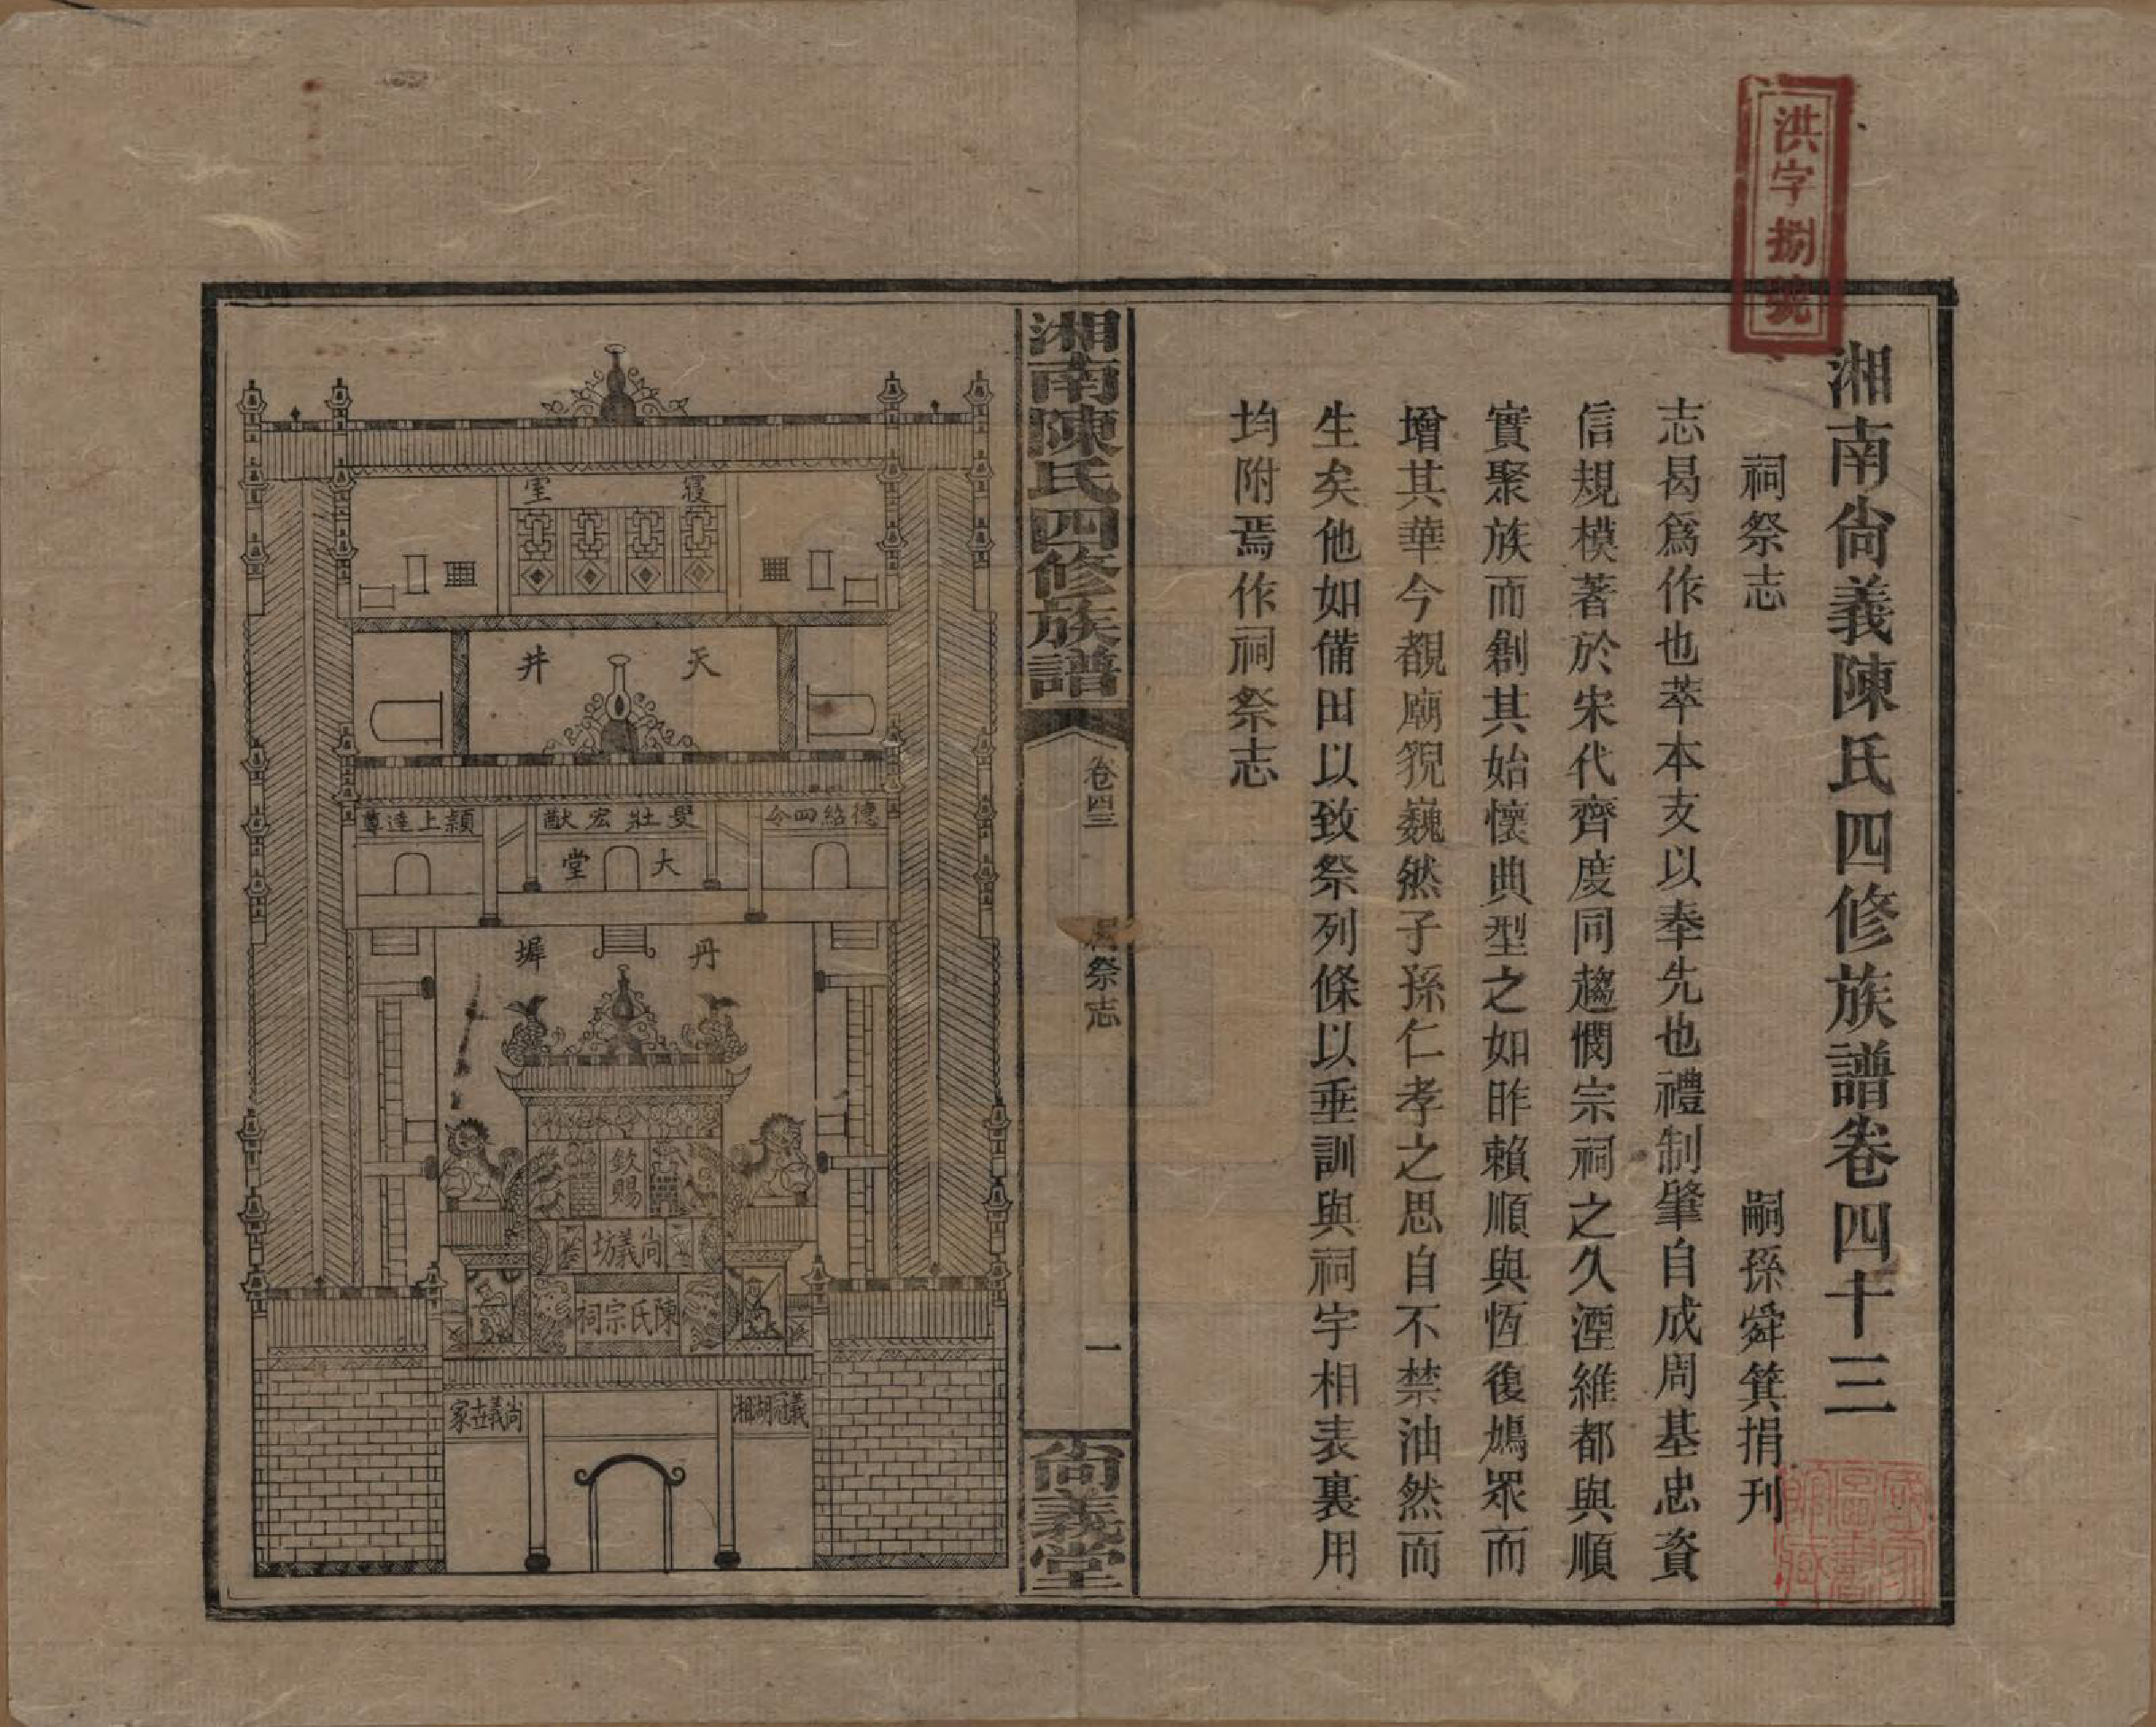 洪字捌號
湘南尙義陳氏四修族譜卷四十三
祠祭志
嗣孫舜箕捐刊
志曷爲作也萃本支以奉先也禮制肇自成周基忠資
信規模著於宋代齊度同趨憫宗祠之久湮維都與順
實聚族而創其始懷典型之如昨賴順與恆復鳩眾而
增其華今覩廟貌巍然子孫仁孝之思自不禁油然而
生矣他如備田以致祭列條以垂訓與祠宇相表裏用
均附焉作祠祭志
湘南陳氏四修族譜
卷四三
祠祭志
一
尙義堂
寢室
天井
德紹四令
壯宏猷
潁上達尊
大堂
丹墀
欽賜
尚義坊
陳氏宗祠
義冠湖湘
尚義世家
國家圖書館藏